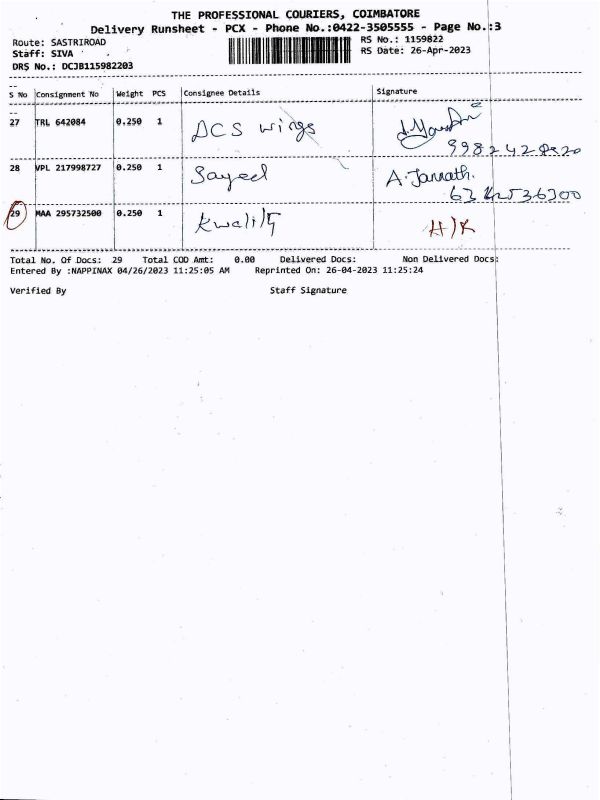 THE PROFESSIONAL COURIERS, COIMBATORE
Delivery Runsheet - PCX - Phone No.:0422-3505555 - Page No.:3
Route: SASTRIROAD
RS No.: 1159822
Staff: SIVA
RS Date: 26-Apr-2023
DRS No.: DCJB115982203
S No Consignment No Weight PCS Consignee Details Signature
27 TRL 642084 0.250 1 DCS wings
28 VPL 217998727 0.250 1 Sayeed A. Jannath.
29 MAA 295732500 0.250 1 Kwality H/K
Total No. Of Docs: 29 Total COD Amt: 0.00 Delivered Docs: Non Delivered Docs:
Entered By :NAPPINAX 04/26/2023 11:25:05 AM Reprinted On: 26-04-2023 11:25:24
Verified By Staff Signature